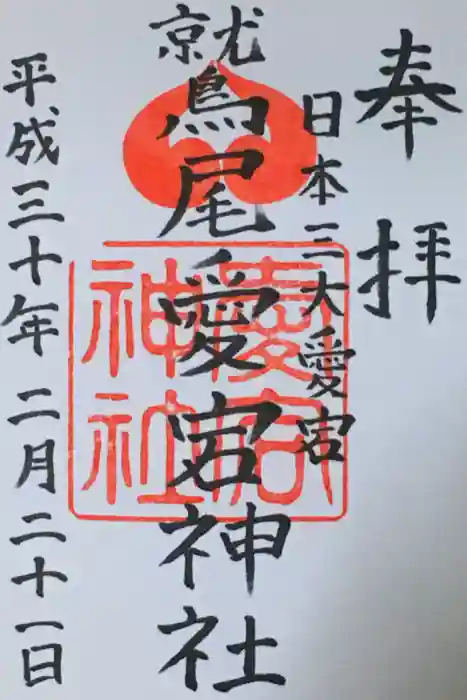 奉拝
日本三大愛宕
鷲尾愛宕神社
愛宕
神社
平成三十年二月二十一日